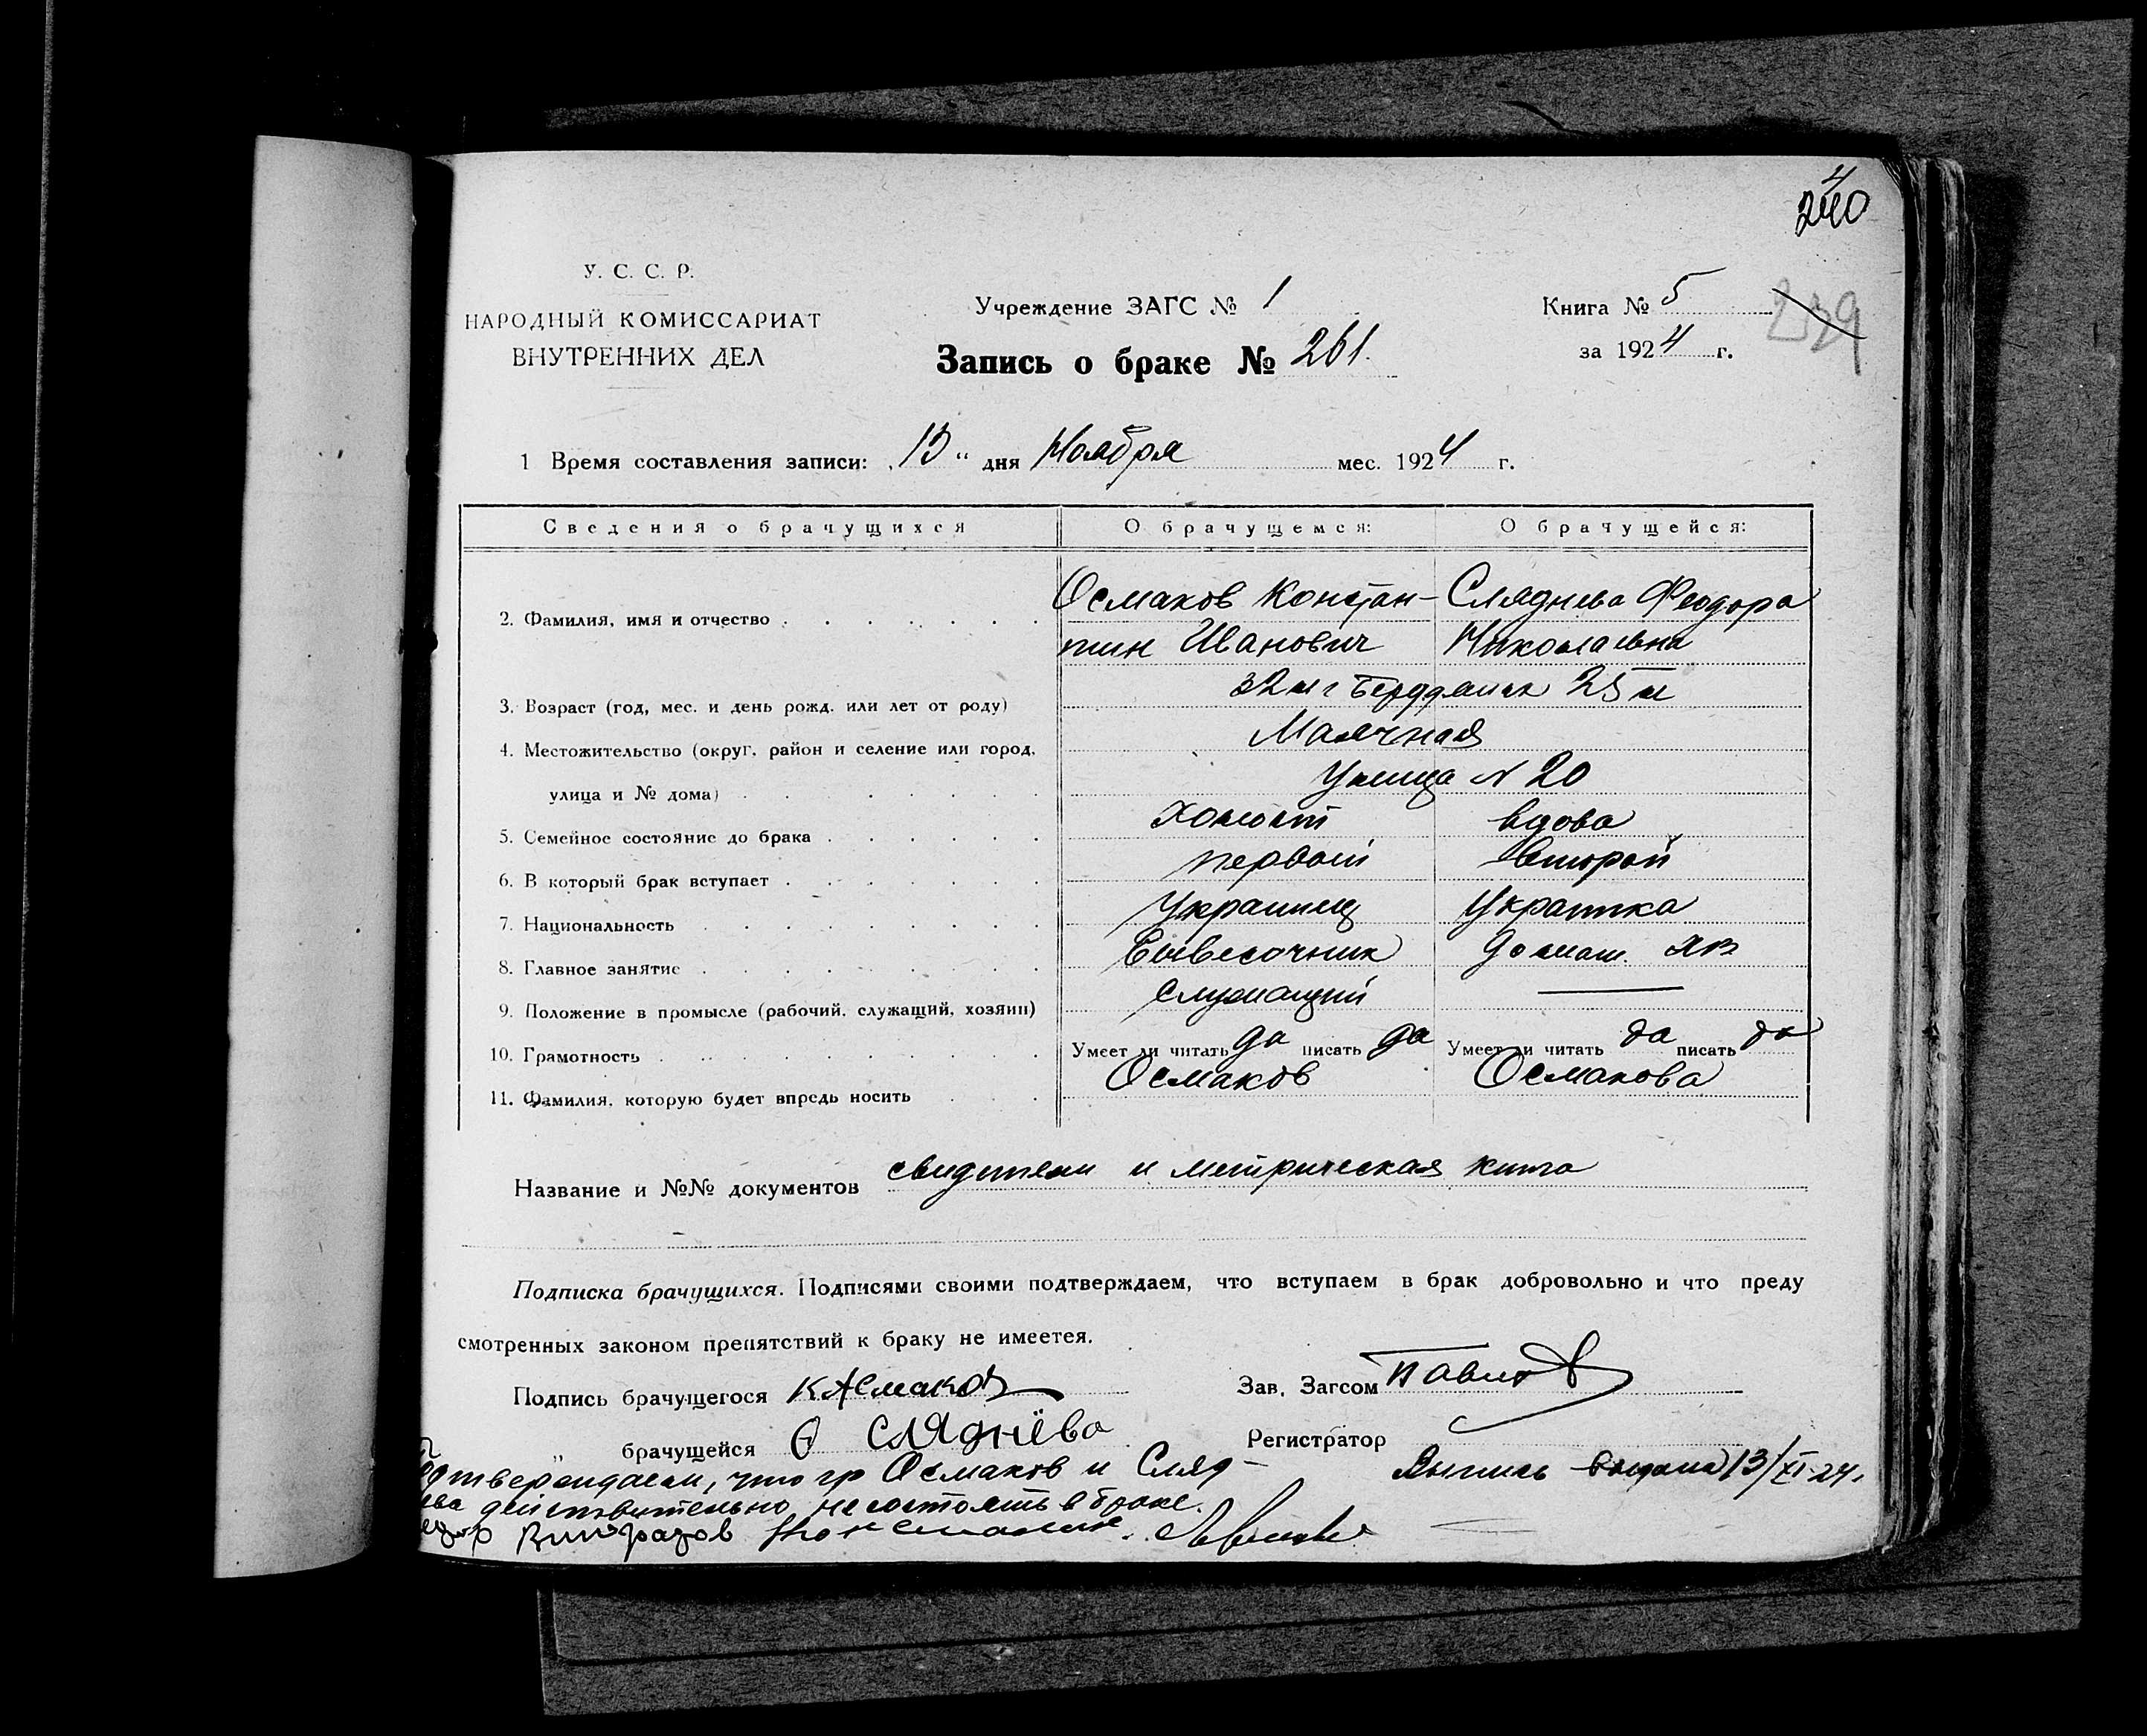 240
У. С. С. Р.
НАРОДНЫЙ КОМИССАРИАТ
ВНУТРЕННИХ ДЕЛ
Учреждение ЗАГС № 1
Запись о браке № 261.
Книга № 5
239
за 1924 г.
1 Время составления записи: „13“ дня Ноября мес. 1924 г.
Сведения о брачущихся О брачущемся: О брачущейся:
2. Фамилия, имя и отчество Осмаков Констан- Сляднева Феодора
тин Иванович Николаевна
3. Возраст (год, мес. и день рожд. или лет от роду) 32 л г Бердянск 25 л
4. Местожительство (округ, район и селение или город, Маячная
улица и № дома) Улица N 20
5. Семейное состояние до брака холост вдова
6. В который брак вступает первый второй
7. Национальность Украинец Украинка
8. Главное занятие Вывесочник домаш. хоз
9. Положение в промысле (рабочий, служащий, хозяин) служащий
10. Грамотность Умеет ли читать да писать да Умеет ли читать да писать да
11. Фамилия, которую будет впредь носить Осмаков Осмакова
Название и №№ документов свидетели и метрическая книга
Подписка брачущихся. Подписями своими подтверждаем, что вступаем в брак добровольно и что преду
смотренных законом препятствий к браку не имеется.
Подпись брачущегося КОсмаков Зав. Загсом
„ брачущейся Ѳ Сляднёва Регистратор
одтверждаем, что гр Осмаков и Сляд- Выпись выдана 13/XI-24.
ева действительно не состоять в браке.
Виноградов